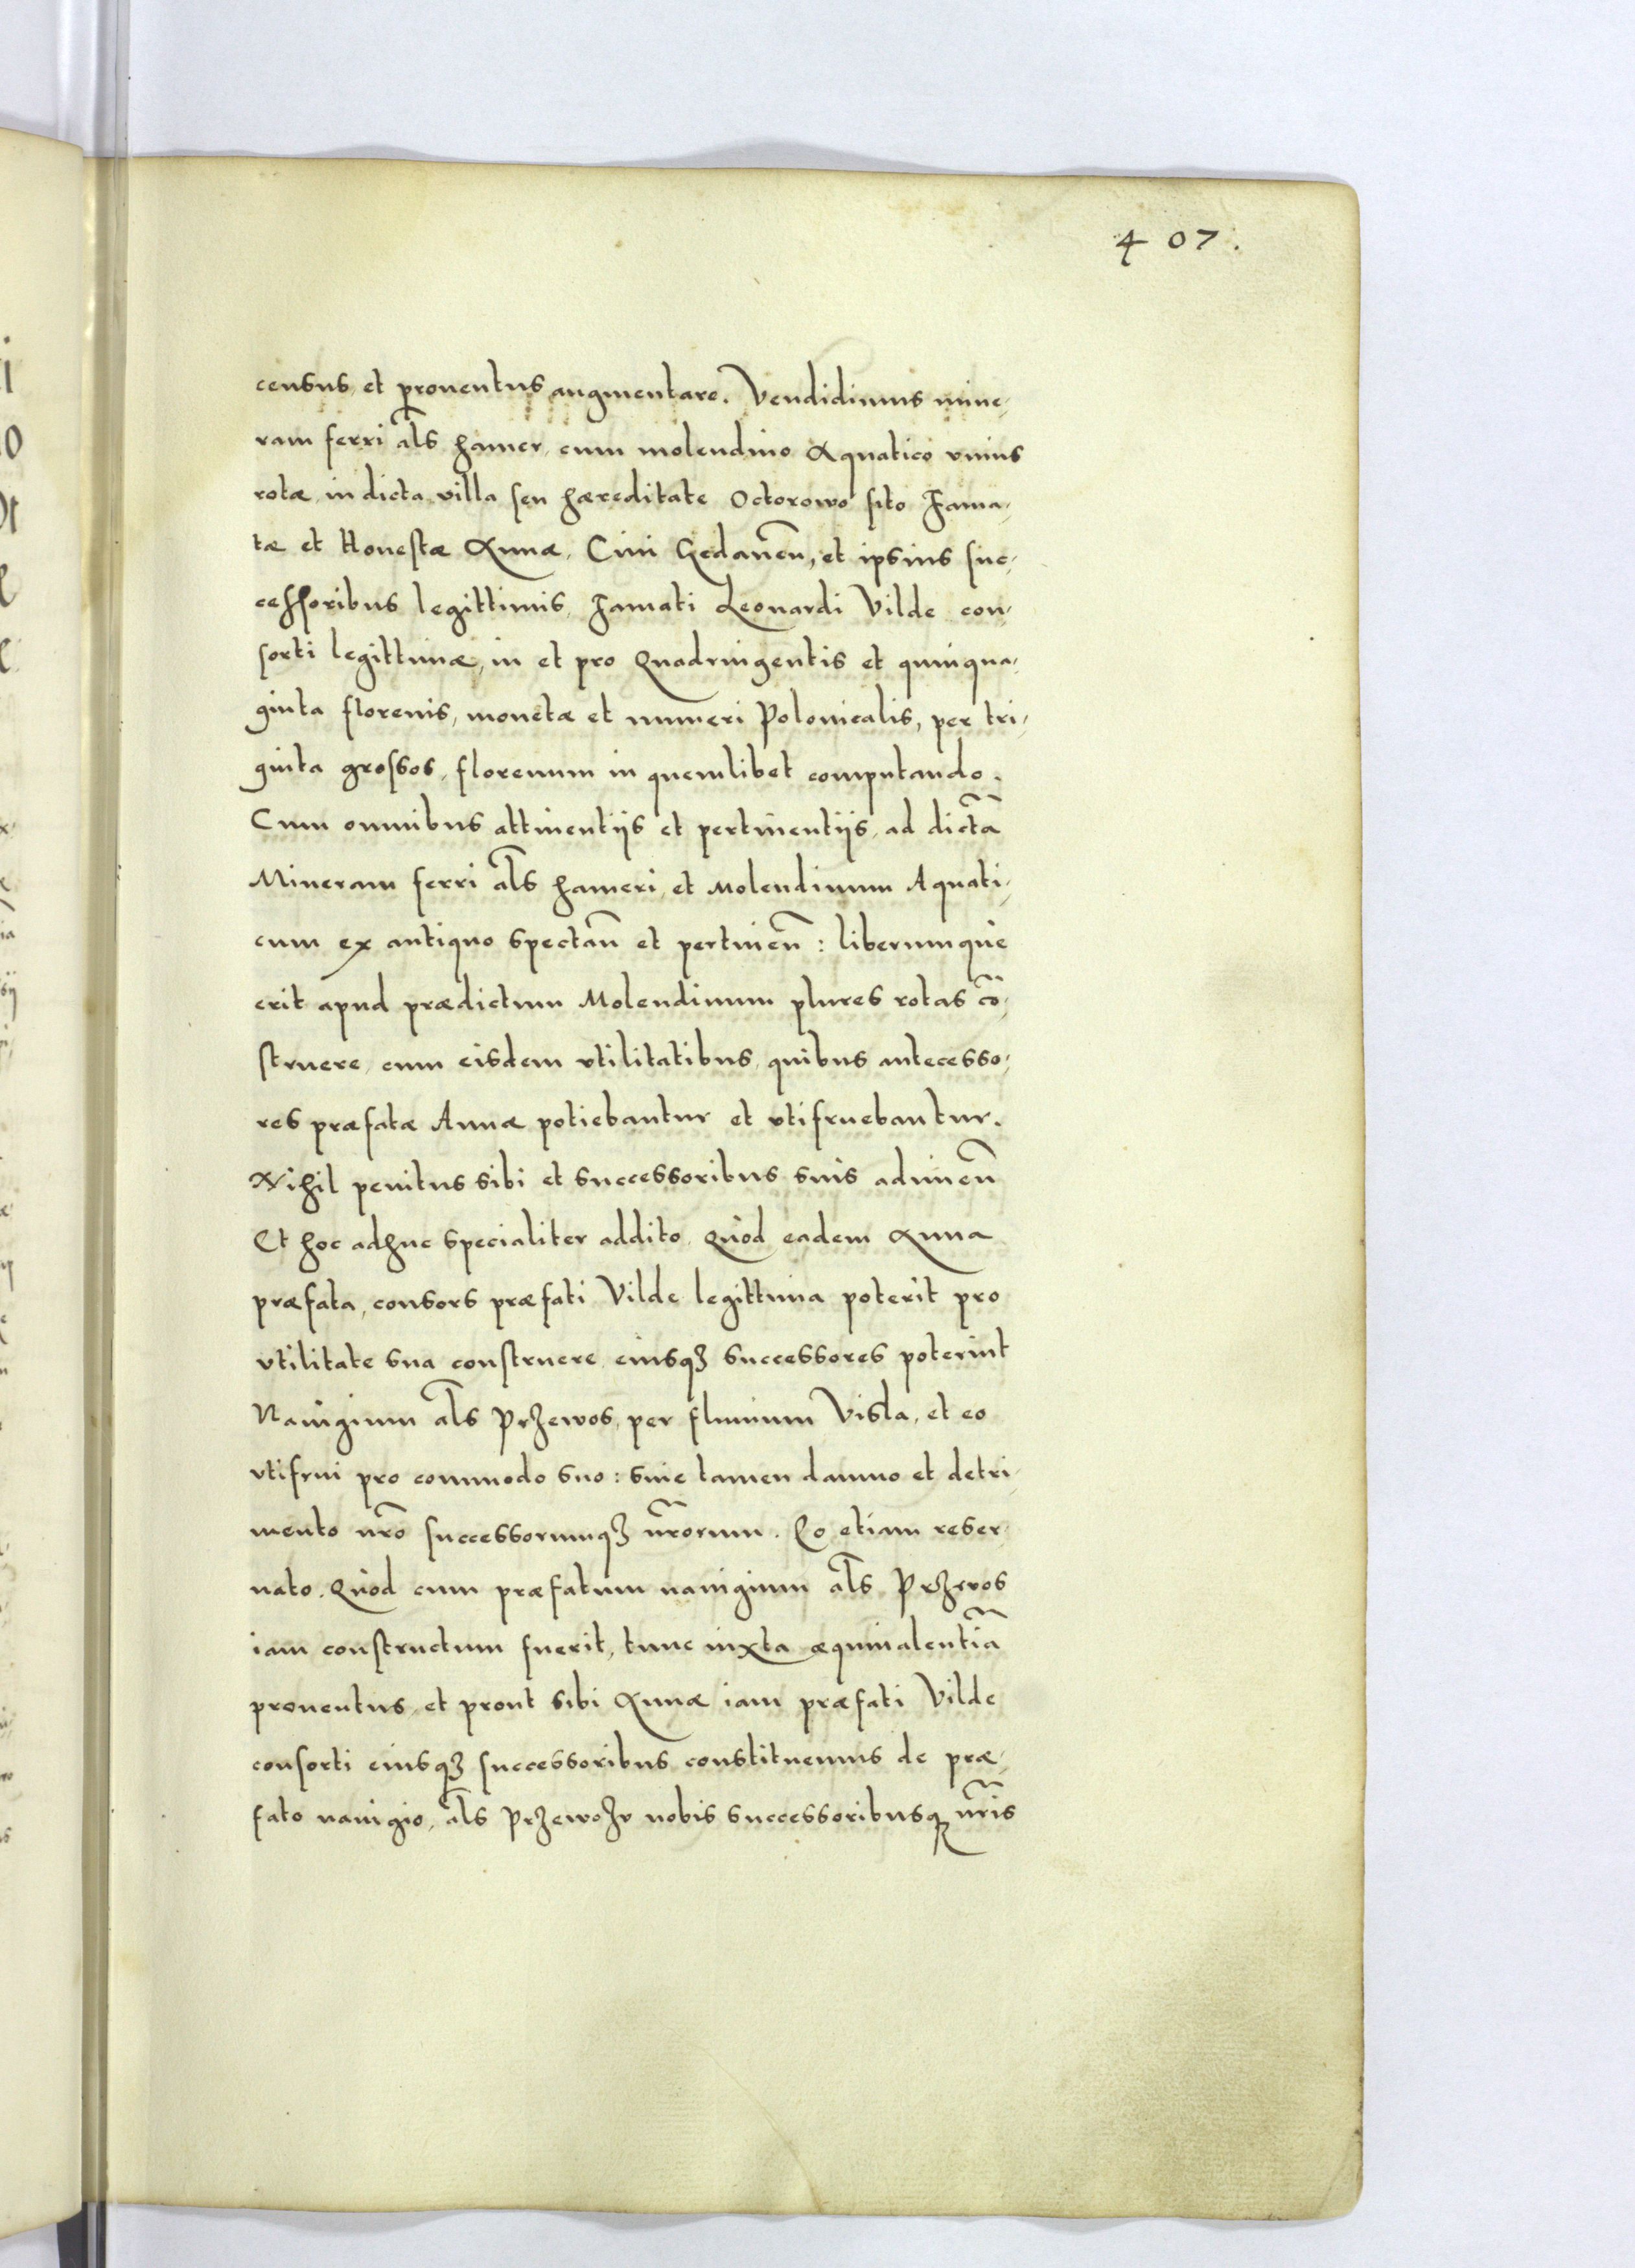 407.
census, et prouentus augmentare. Vendidimus mine,
ram ferri al̃s hamer, cum molendino Aquatico vnius
rotæ, in dicta villa seu hæreditate Octorowo sito Fama,
tæ et Honestæ Annæ, Ciui Gedaneñ, et ipsius suc,
cessoribus legittimis, Famati Leonardi Vilde con,
sorti legittimæ, in et pro Quadringentis et quinqua,
ginta florenis, monetæ et numeri Polonicalis, per tri,
ginta grossos, florenum in quemlibet computando.
Cum omnibus attinentijs et pertinentijs, ad dictã
Mineram ferri al̃s hameri, et Molendinum Aquati,
cum ex antiquo spectañ et pertineñ: liberumquè
erit apud prædictum Molendinum plures rotas cõ,
struere, cum eisdem vtilitatibus, quibus antecesso,
res præfatæ Annæ potiebantur et vtifruebantur.
Nihil penitus sibi et successoribus suis adimeñ
Et hoc adhuc specialiter addito, Quòd eadem Anna
præfata, consors præfati Vilde legittima poterit pro
vtilitate sua construere, eiusqʒ successores poterint
Nauigium al̃s Przewos, per fluuium Visla, et eo
vtifrui pro commodo suo: sine tamen damno et detri,
mento nr̃o successorumqʒ nr̃orum. Eo etiam reser,
uato. Quòd cum præfatum nauigium al̃s Przewos
iam constructum fuerit, tunc iuxta æquiualentiã
prouentus, et prout sibi Annæ iam præfati Vilde
consorti eiusqʒ successoribus constituemus de præ,
fato nauigio, al̃s Przewozu nobis successoribusqʒ nr̃is